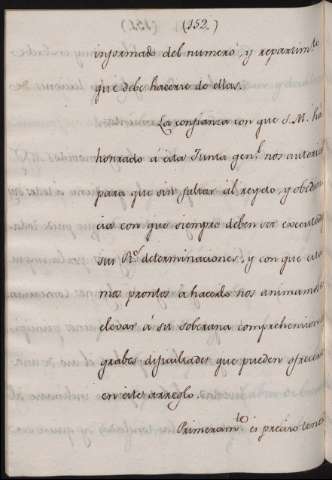 (152.)
informado del numero, y repartimto
que debe hacerse de ellas.
La confianza con que S. M. ha
honrado á esta Junta genl. nos autoriza
para que sin faltar al respeto, y obedien
cia con que siempre deben ser executadas
sus Rs. determinaciones, y con que esta
mas prontos a hacerlo nos animamos
elevar á su soberana comprehension
grabes dificultades que pueden ofrecer
en este arreglo.
Primeramte. es preciso tener